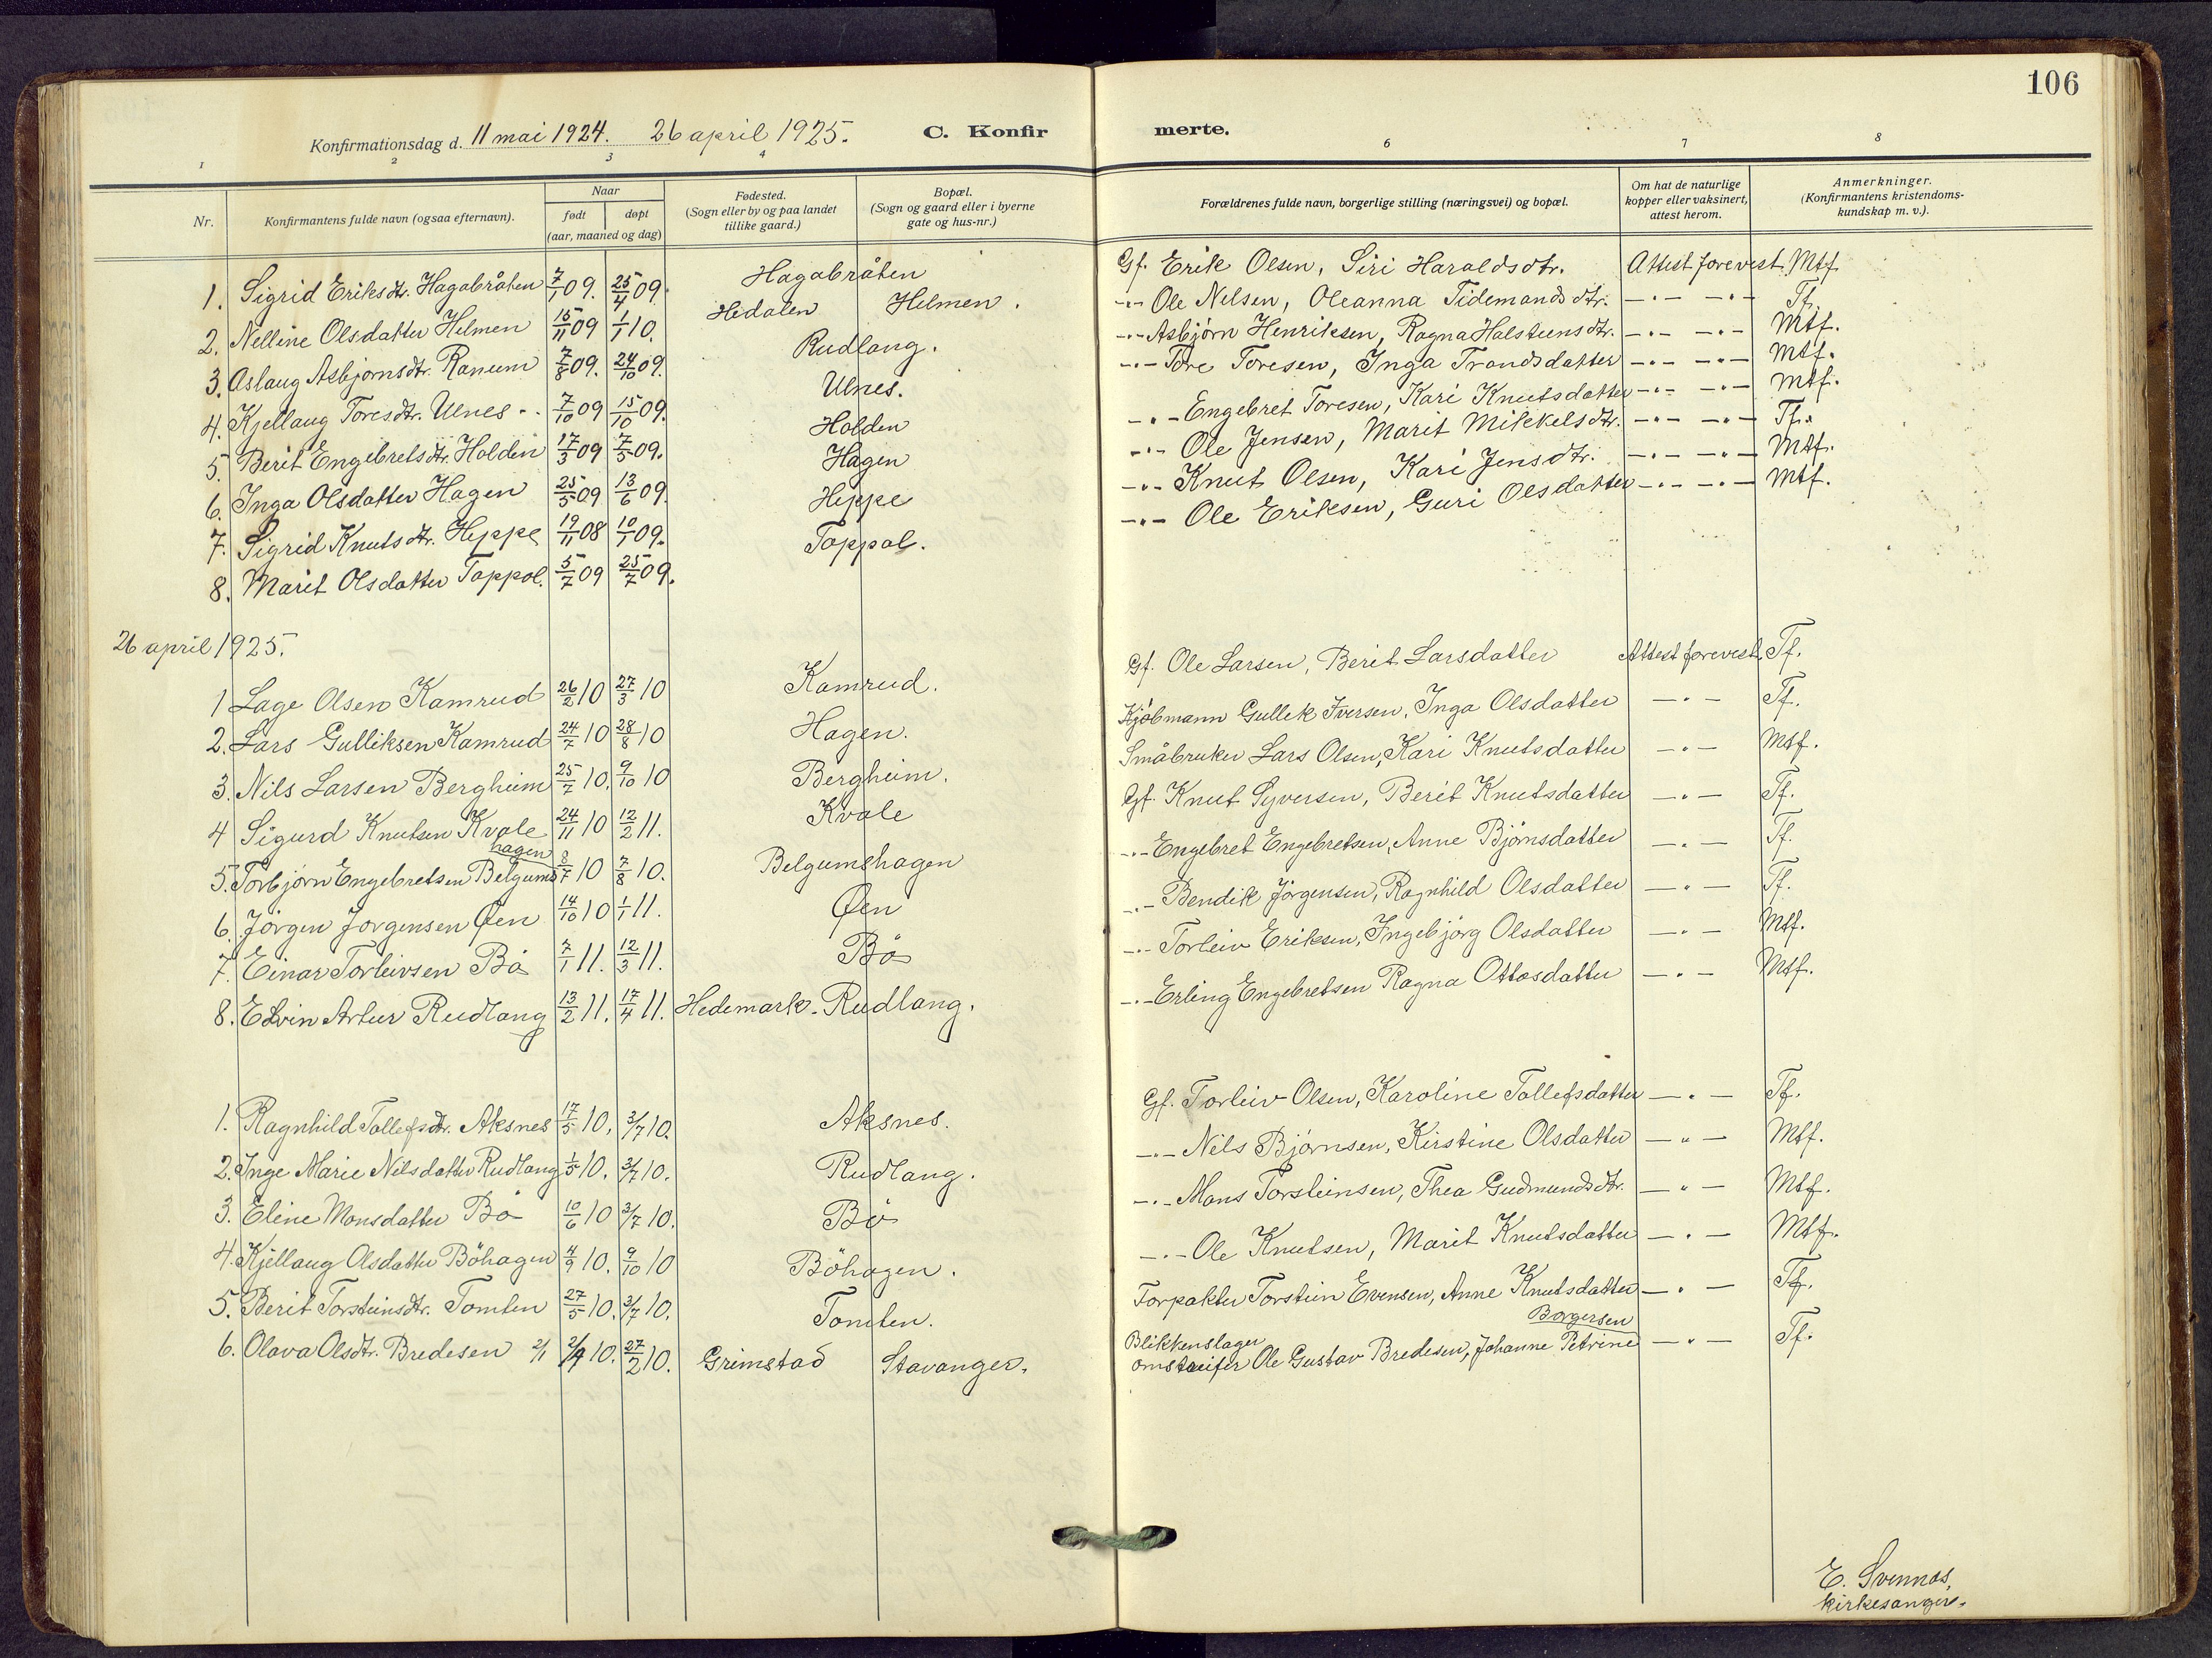 106
Konfirmationsdag d. 11 mai 1924. 26 april 1925. C. Konfir merte.
1 2 3 4 6 7 8
Nr. Konfirmantens fulde navn (ogsaa efternavn). Naar født døpt (aar, maaned og dag) Fødested. (Sogn eller by og paa landet tillike gaard.) Bopæl. (Sogn og gaard eller i byerne gate og hus-nr.) Forældrenes fulde navn, borgerlige stilling (næringsvei) og bopæl. Om hat de naturlige kopper eller vaksinert, attest herom. Anmerkninger. (Konfirmantens kristendoms-kundskap m. v.).
1. Sigrid Eriksdtr. Hagabråten 7/1 09. 25/4 09. Hagabråten Gf. Erik Olsen, Siri Haraldsdtr. Attest forevist. Mtf.
2. Nelline Olsdatter Helmen 15/11 09 1/1 10. Hedalen Helmen. -"- Ole Nelsen, Oleanna Tidemandsdtr. -"- -"- Tf.
3. Aslaug Asbjørnsdtr. Ranum 7/8 09. 24/10 09. Rudlang. -"- Asbjørn Henriksen, Ragna Halsteensdtr. -"- -"- Mtf.
4. Kjellaug Toresdtr. Ulnes 7/10 09 15/10 09. Ulnes. -"- Tore Toresen, Inga Trondsdatter -"- -"- Mtf.
5. Berit Engebretsdtr. Holden 17/3 09 7/5 09. Holden -"- Engebret Toresen, Kari Knutsdatter -"- -"- Mtf.
6. Inga Olsdatter Hagen 25/5 09 13/6 09. Hagen -"- Ole Jensen, Marit Mikkelsdtr. -"- -"- Tf.
7. Sigrid Knutsdtr. Heppe 19/11 08 10/1 09. Heppe -"- Knut Olsen, Kari Jensdtr. -"- -"- Mtf.
8. Marit Olsdatter Toppol. 5/7 09 25/7 09. Toppol. -"- Ole Eriksen, Guri Olsdatter -"- -"- Mtf.
26 april 1925.
1 Lage Olsen Kamrud 26/2 10 27/3 10 Kamrud. Gf. Ole Larsen, Berit Larsdatter Attest forevist. Tf.
2. Lars Gulliksen Kamrud 24/7 10 28/8 10 Hagen. Kjøbmann Gullek Iversen, Inga Olsdatter -"- Tf.
3. Nils Larsen Bergheim 25/7 10. 9/10 10 Bergheim. Småbruker Lars Olsen, Kari Knutsdatter -"- Mtf.
4 Sigurd Knutsen Kvale 24/11 10 12/2 11. Kvale Gf. Knut Syversen, Berit Knutsdatter -"- Tf.
5. Torbjørn Engebretsen Belgumshagen 8/7 10 7/8 10. Belgumshagen -"- Engebret Engebretsen, Anne Bjørnsdatter -"- Tf.
6. Jörgen Jorgensen Øen 14/10 10 1/1 11. Øen -"- Bendik Jörgensen, Ragnhild Olsdatter -"- Tf.
7. Einar Torleivsen Bö 7/1 11. 12/3 11. Bö -"- Torleiv Eriksen, Ingebjörg Olsdatter -"- Mtf.
8. Edvin Artur Rudlang 13/2 11. 17/4 11. Hedemark. Rudlang. -"- Erling Engebretsen Ragna Ottosdatter -"- Mtf.
1. Ragnhild Tollefsdtr. Aksnes 17/5 10. 3/7 10. Aksnes. Gf. Torleiv Olsen, Karoline Tollefsdatter -"- Tf.
2. Inge Marie Nilsdatter Rudlang 1/5 10. 3/7 10. Rudlang. -"- Nils Bjørnsen, Kirstine Olsdatter -"- Mtf.
3. Eline Monsdatter Bö 10/6 10 3/7 10. Bö -"- Mons Torsteinsen, Thea Gudmundsdtr. -"- Mtf.
4. Kjellaug Olsdatter Böhagen 4/9 10. 9/10 10 Böhagen. -"- Ole Knutsen, Marit Knutsdatter -"- Mtf.
5. Berit Torsteinsdtr. Tomten 27/5 10. 3/7 10. Tomten. Forpakter Torstein Evensen, Anne Knutsdatter -"- Tf.
6. Olava Olsdtr. Bredesen 2/1 10. 27/2 10. Grimstad Stavanger. Blikkenslager omstreifer Ole Gustav Bredesen, Johanne Petrine Borgersen -"- Tf.
E. Svennes,
kirkesanger.